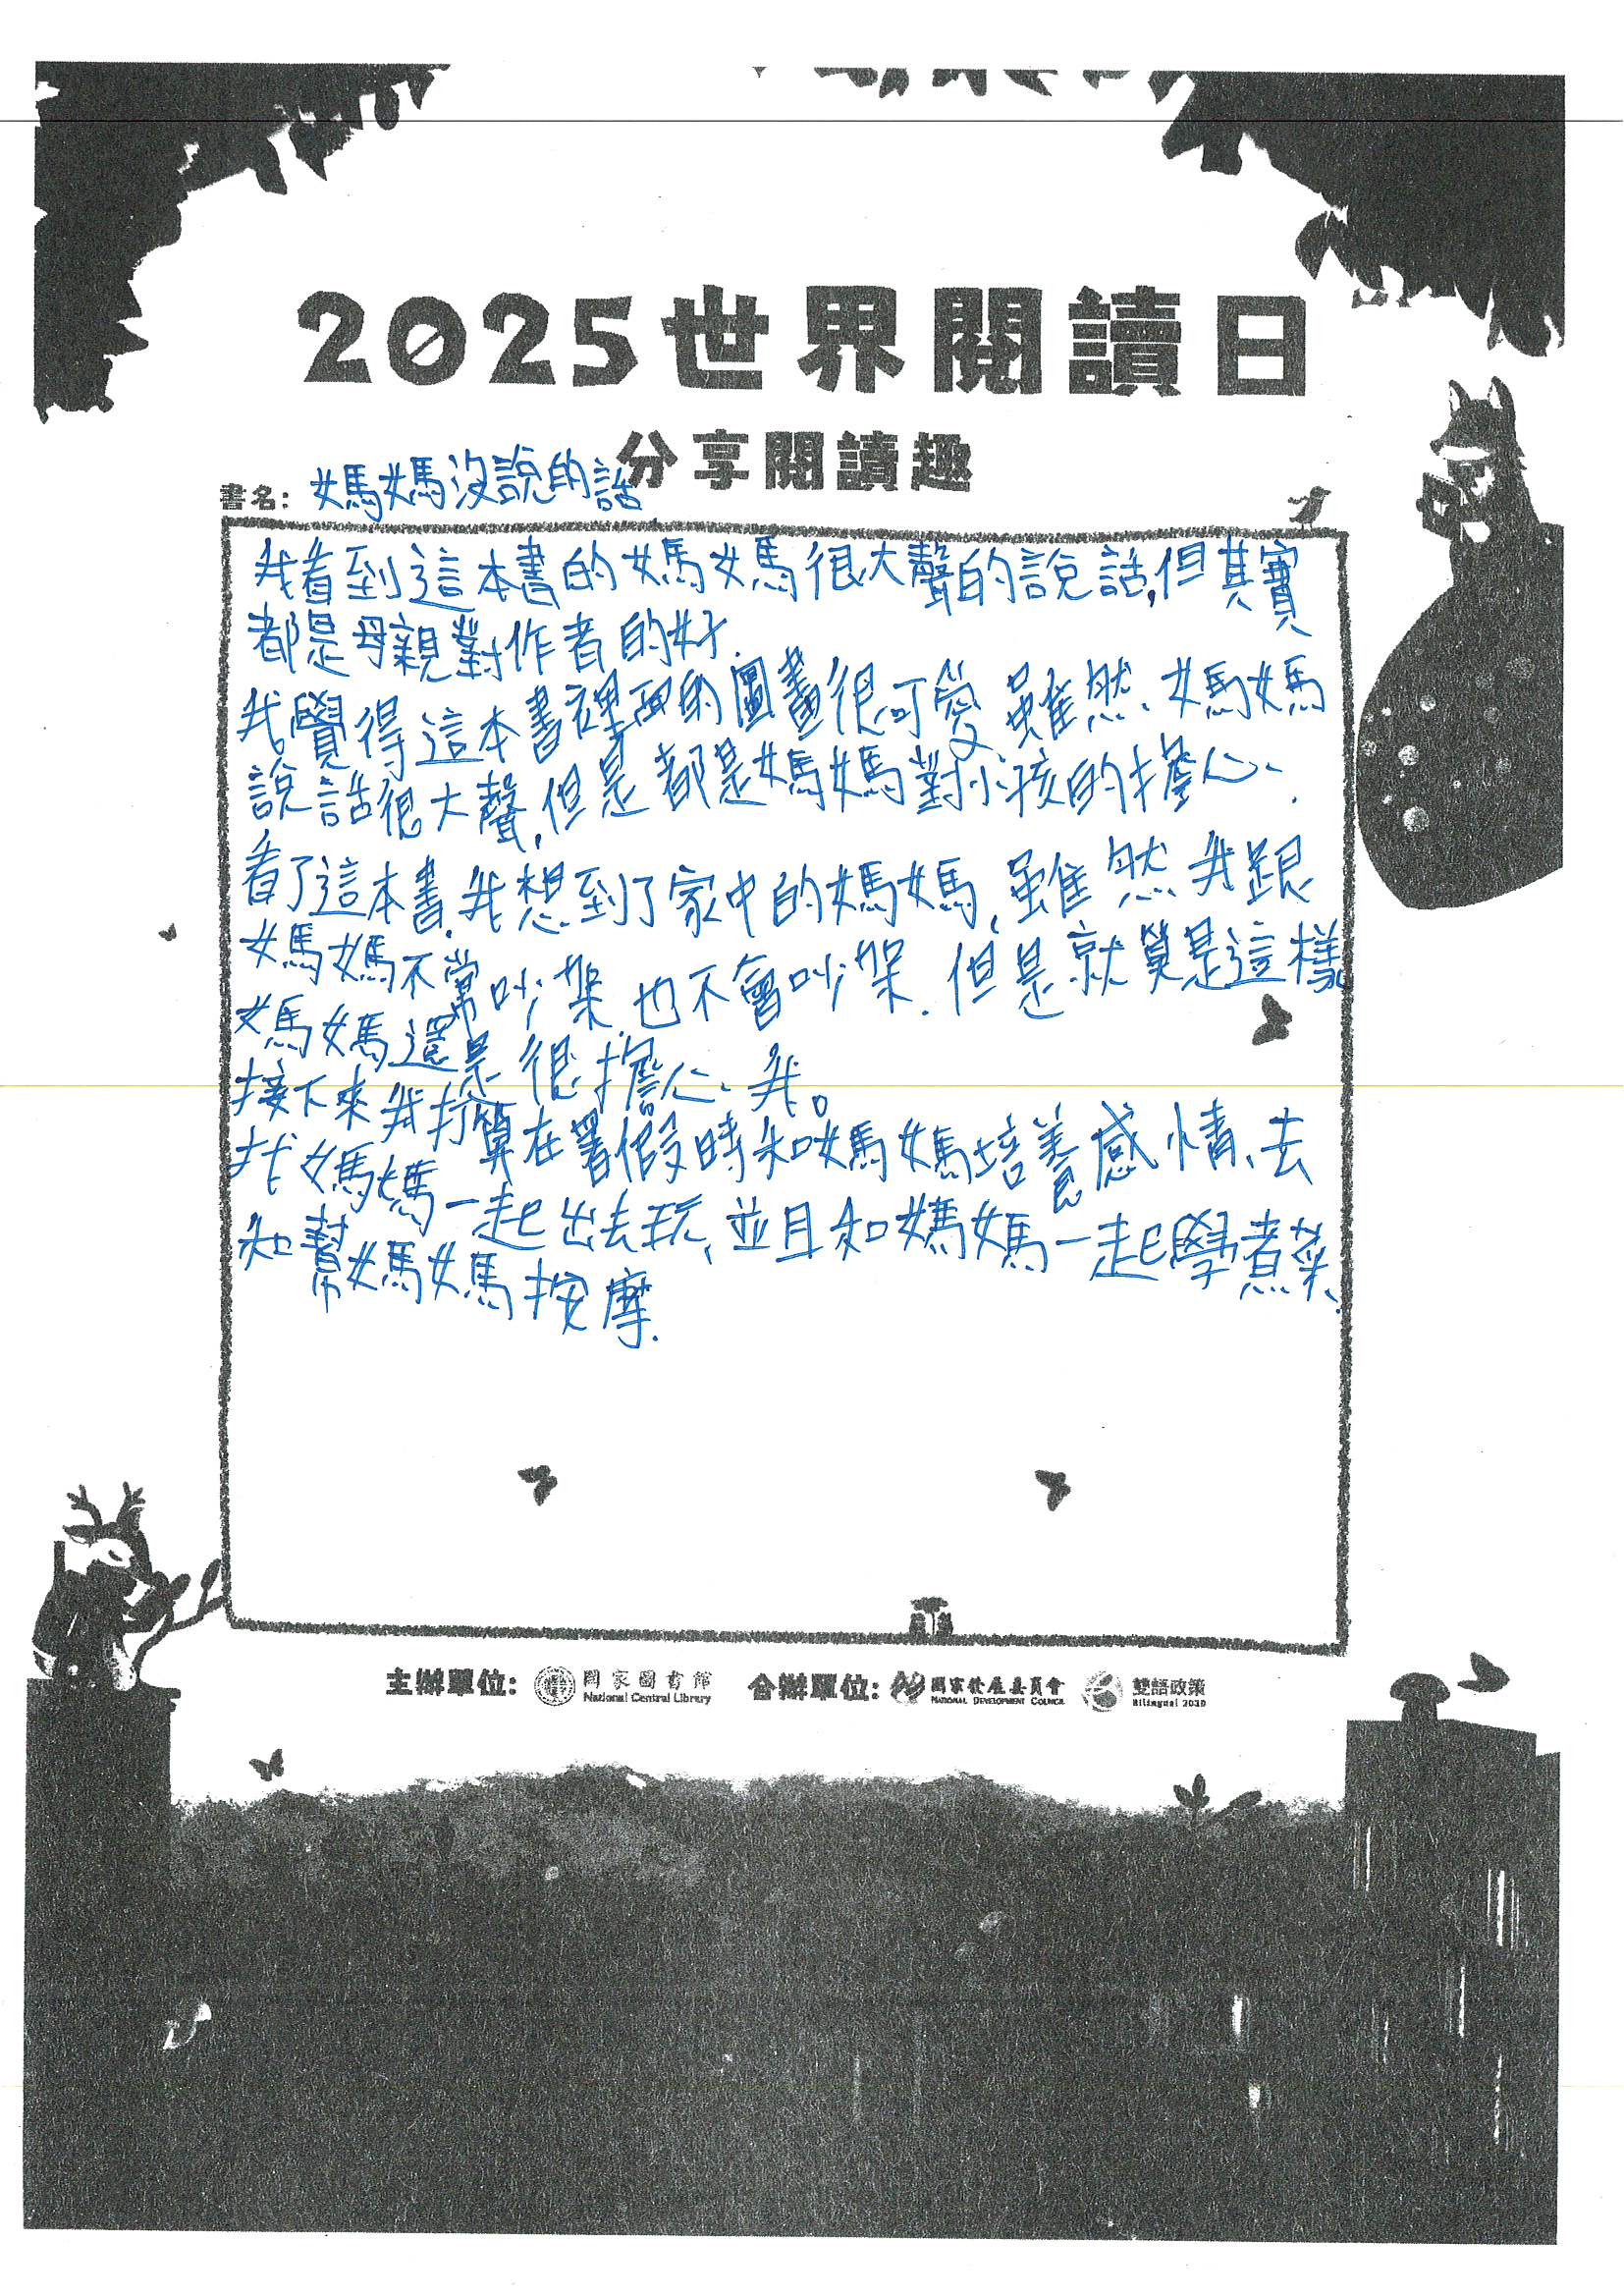 2025世界閱讀日
分享閱讀趣
書名: 媽媽沒說的話
我看到這本書的媽媽很大聲的說話,但其實
都是母親對作者的好.
我覺得這本書裡面的圖畫很可愛,雖然、媽媽
說話很大聲,但是都是媽媽對小孩的擔心、
看了這本書,我想到了家中的媽媽,雖然我跟
媽媽不常吵架,也不會吵架.但是就算是這樣
媽媽還是很擔心我。
接下來我打算在暑假時和媽媽培養感情、去
找媽媽一起出去玩,並且和媽媽一起學煮菜、
和幫媽媽按摩.
主辦單位: 國家圖書館 National Central Library 合辦單位: 國家發展委員會 NATIONAL DEVELOPMENT COUNCIL 雙語政策 Bilingual 2030